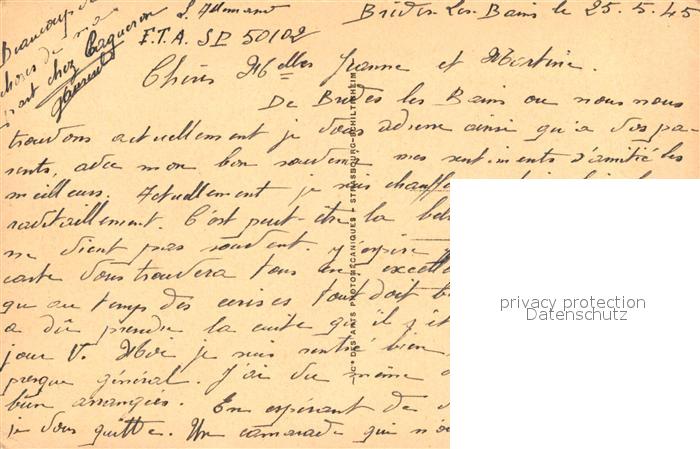 Beaucoup de
choses de ma
part chez Caqueron
L. Allemand
F.T.A. SP 50102
Brides Les Bains le 25.5.45
Chères Melles Jeanne et Martine.
De Brides les Bains ou nous nous
trouvons actuellement je vous adresse ainsi qu'a vos pa
rents, avec mon bon souvenir mes sentiments d'amitié les
meilleurs. Actuellement je suis
ravitaillement. C'est peut-être la
ne vient pas souvent. J'espère
carte vous trouvera tous en
qu au temps des cerises tout doit
a dû prendre la cuite qu'il
jour V. Moi je suis rentré bien
presque général. J'ai vu même
bien arrangés. En espérant de
je vous quitte. Un camarade qui
CIE DES ARTS PHOTOMÉCANIQUES - STRASBOURG-SCHILTIGHEIM
privacy protection
Datenschutz